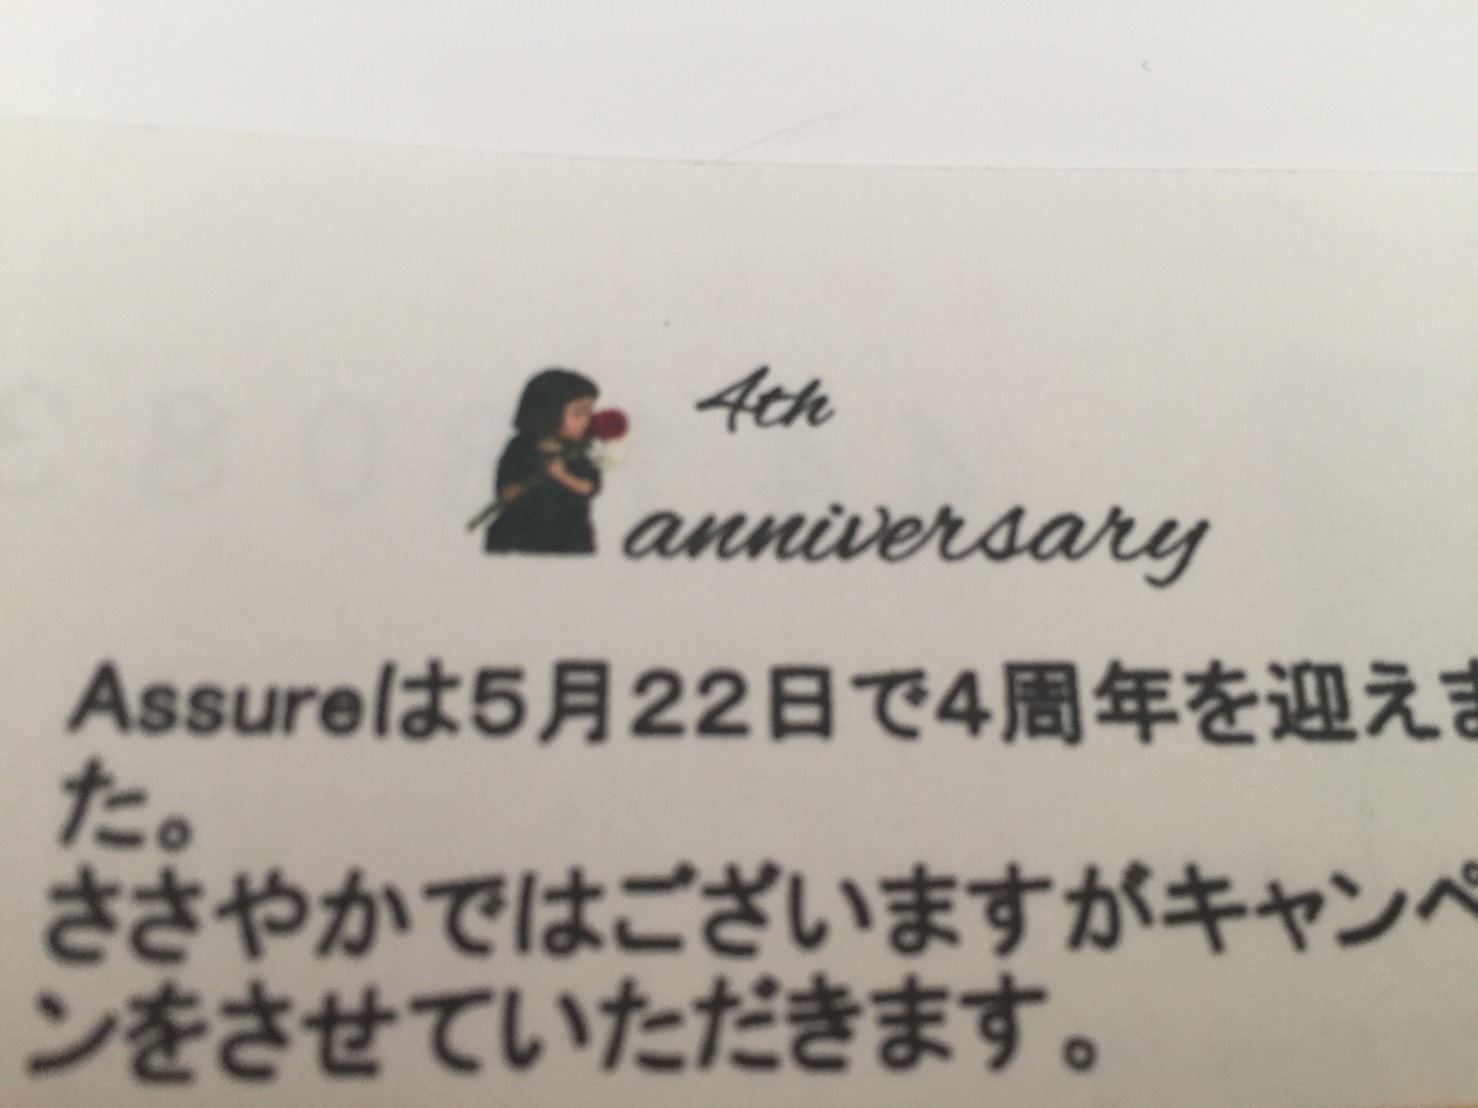 4th
anniversary
Assureは5月22日で4周年を迎えま
た。
ささやかではございますがキャンペ
ンをさせていただきます。